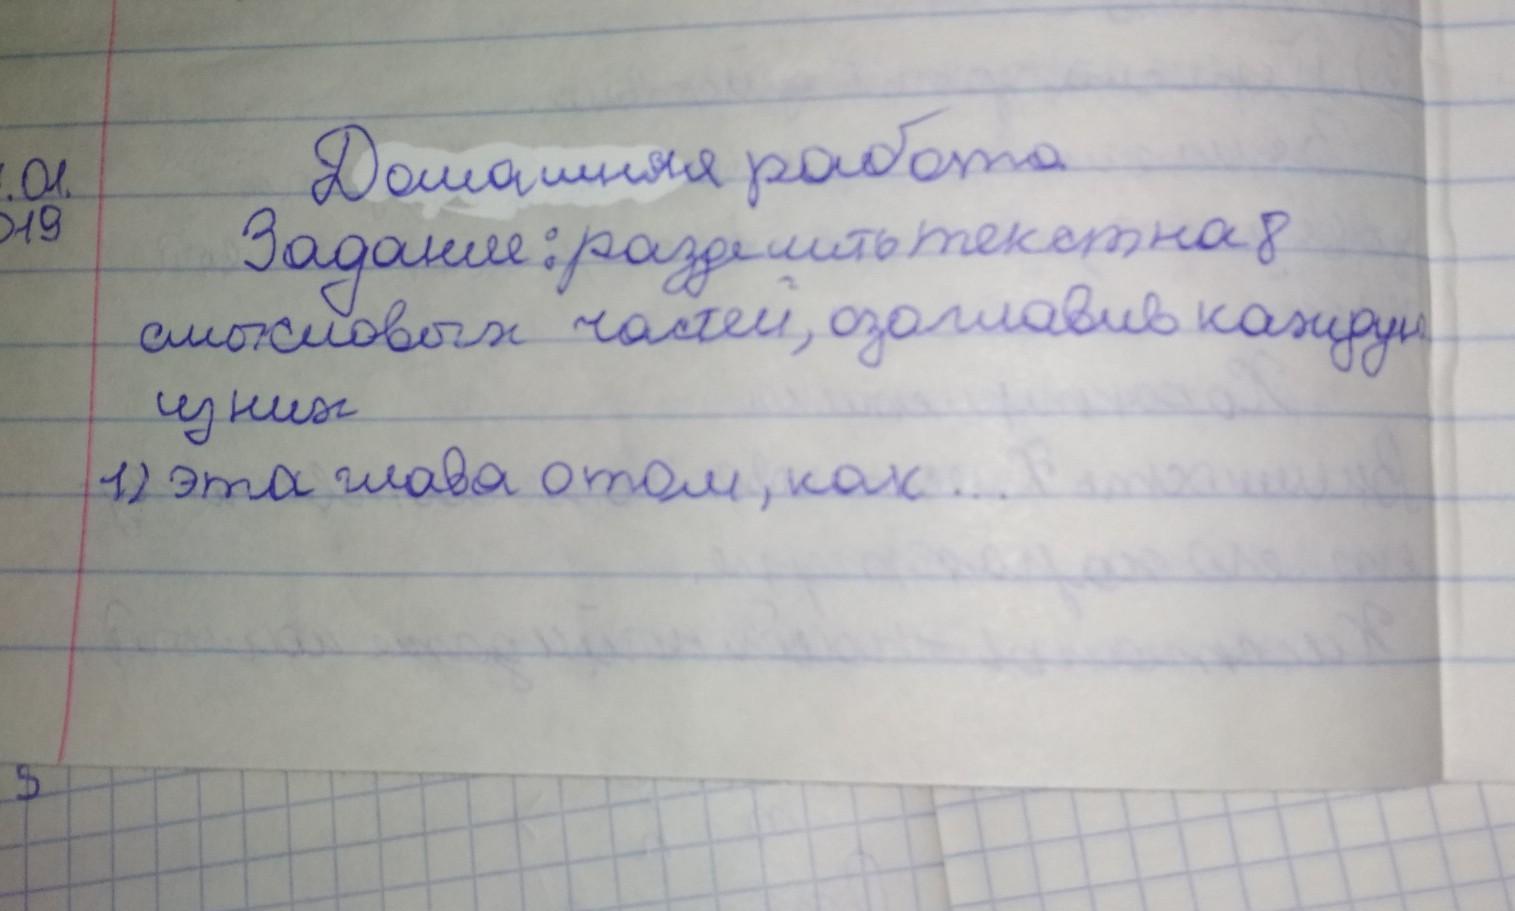 .01.
Домашняя работа
019
Задание: разделить текст на 8
смысловых частей, озаглавив каждую
из них
1) эта глава о том, как ...
5